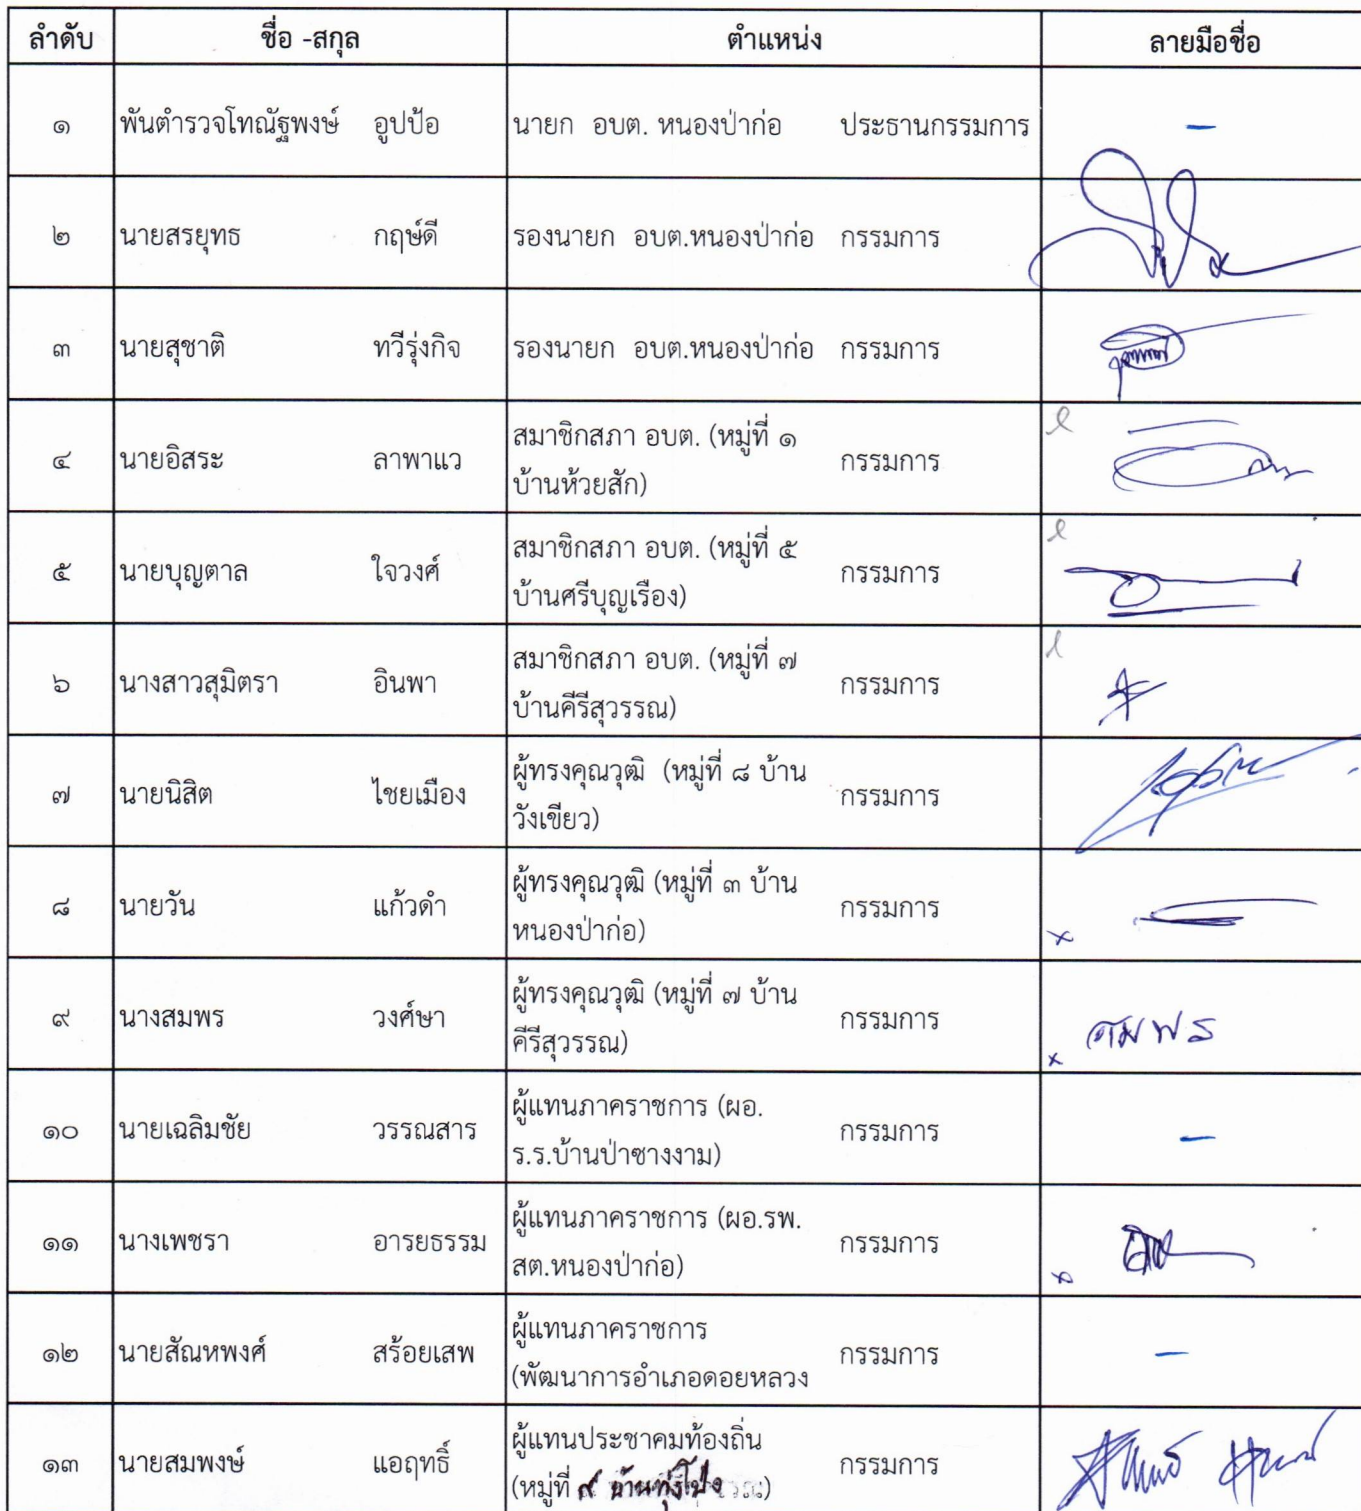 ลำดับ ชื่อ -สกุล ตำแหน่ง ลายมือชื่อ
๑ พันตำรวจโทณัฐพงษ์ อูปป้อ นายก อบต. หนองป่าก่อ ประธานกรรมการ -
๒ นายสรยุทธ กฤษ์ดี รองนายก อบต.หนองป่าก่อ กรรมการ
๓ นายสุชาติ ทวีรุ่งกิจ รองนายก อบต.หนองป่าก่อ กรรมการ
๔ นายอิสระ ลาพาแว สมาชิกสภา อบต. (หมู่ที่ ๑
บ้านห้วยสัก) กรรมการ
๕ นายบุญตาล ใจวงศ์ สมาชิกสภา อบต. (หมู่ที่ ๕
บ้านศรีบุญเรือง) กรรมการ
๖ นางสาวสุมิตรา อินพา สมาชิกสภา อบต. (หมู่ที่ ๗
บ้านคีรีสุวรรณ) กรรมการ
๗ นายนิสิต ไชยเมือง ผู้ทรงคุณวุฒิ (หมู่ที่ ๘ บ้าน
วังเขียว) กรรมการ
๘ นายวัน แก้วดำ ผู้ทรงคุณวุฒิ (หมู่ที่ ๓ บ้าน
หนองป่าก่อ) กรรมการ x
๙ นางสมพร วงศ์ษา ผู้ทรงคุณวุฒิ (หมู่ที่ ๗ บ้าน
คีรีสุวรรณ) กรรมการ x สมพร
๑๐ นายเฉลิมชัย วรรณสาร ผู้แทนภาคราชการ (ผอ.
ร.ร.บ้านป่าซางงาม) กรรมการ -
๑๑ นางเพชรา อารยธรรม ผู้แทนภาคราชการ (ผอ.รพ.
สต.หนองป่าก่อ) กรรมการ x
๑๒ นายสัณหพงศ์ สร้อยเสพ ผู้แทนภาคราชการ
(พัฒนาการอำเภอดอยหลวง กรรมการ -
๑๓ นายสมพงษ์ แอฤทธิ์ ผู้แทนประชาคมท้องถิ่น
(หมู่ที่ ๙ บ้านทุ่งโป่ง) กรรมการ